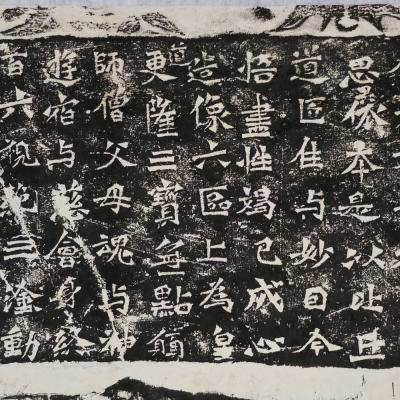 思眾本是以止丘
道匠住与妙目今
悟盡性竭己成心
造像六區上為皇
更道隆三寶無點願
師僧父母魂与神
遊宿与慈會身終
百六現範三塗動